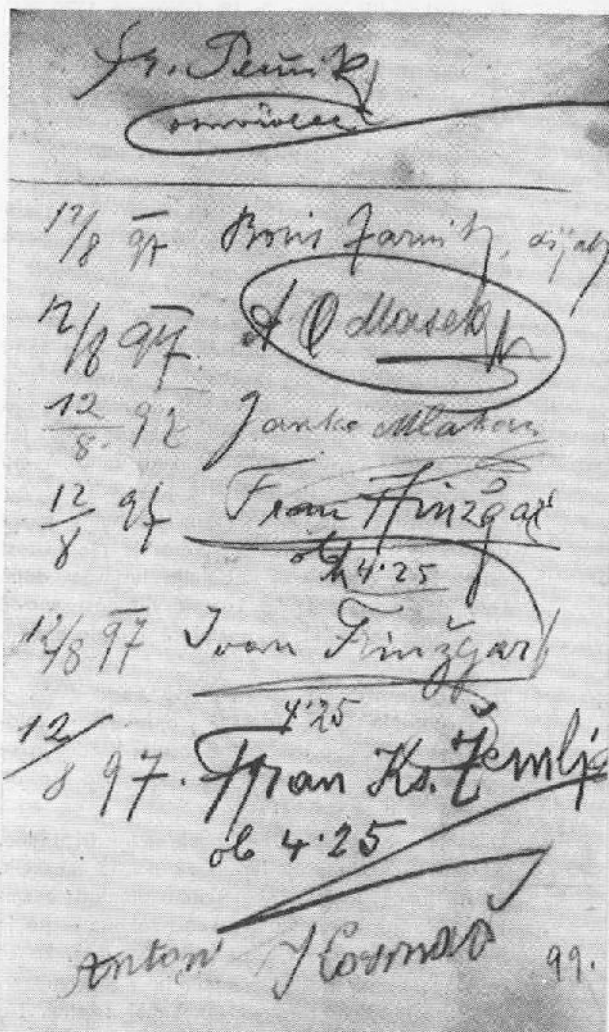 Fr. Pernik
osmošolec
12/8 97 Boris Zarnik, dijak
12/8 97. A Q Masek
12/8. 97 Janko Mlakar
12/8 97 Fran Finžgar
ob 4·25
12/8 97 Ivan Finžgar
4·25
12/8 97. Fran Ks. Zemlja
ob 4·25
Anton 99.